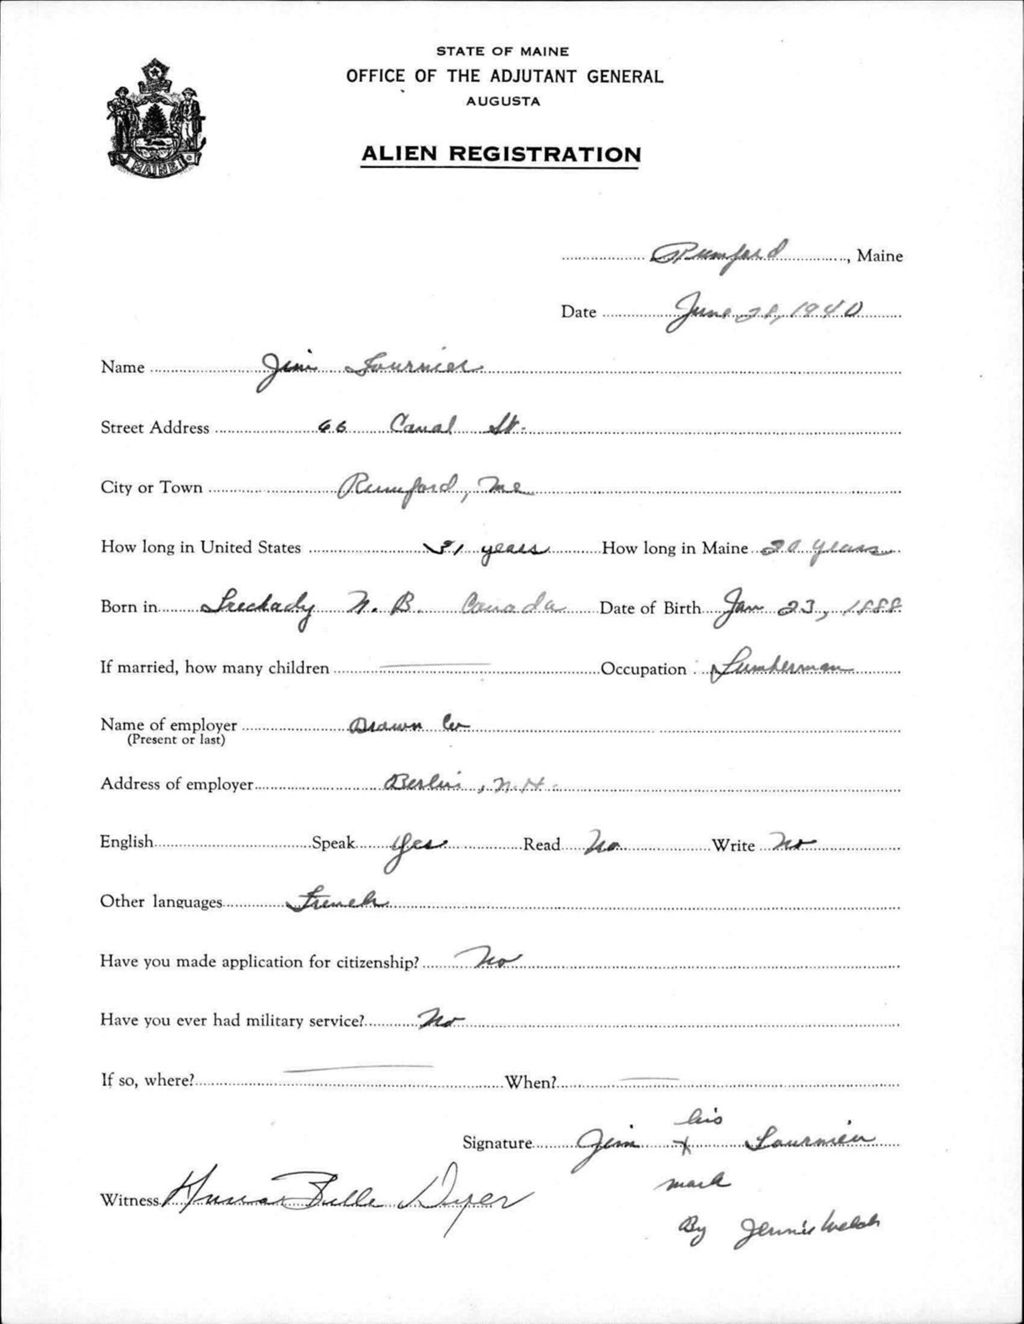 STATE OF MAINE
OFFICE OF THE ADJUTANT GENERAL
AUGUSTA
ALIEN REGISTRATION
MAINE
Rumford, Maine
Date June 28, 1940
Name Jim Fournier
Street Address 66 Canal St.
City or Town Rumford, Me
How long in United States 31 years How long in Maine 20 years
Born in N. B. Canada Date of Birth Jan 23, 1888
If married, how many children — Occupation Lumberman
Name of employer Brown Co
(Present or last)
Address of employer Berlin, N. H.
English Speak Yes Read No Write No
Other languages French
Have you made application for citizenship? No
Have you ever had military service? No
If so, where? — When? —
his
Signature Jim x Fournier
Witness Belle Dyer mark
By Jennie Welch